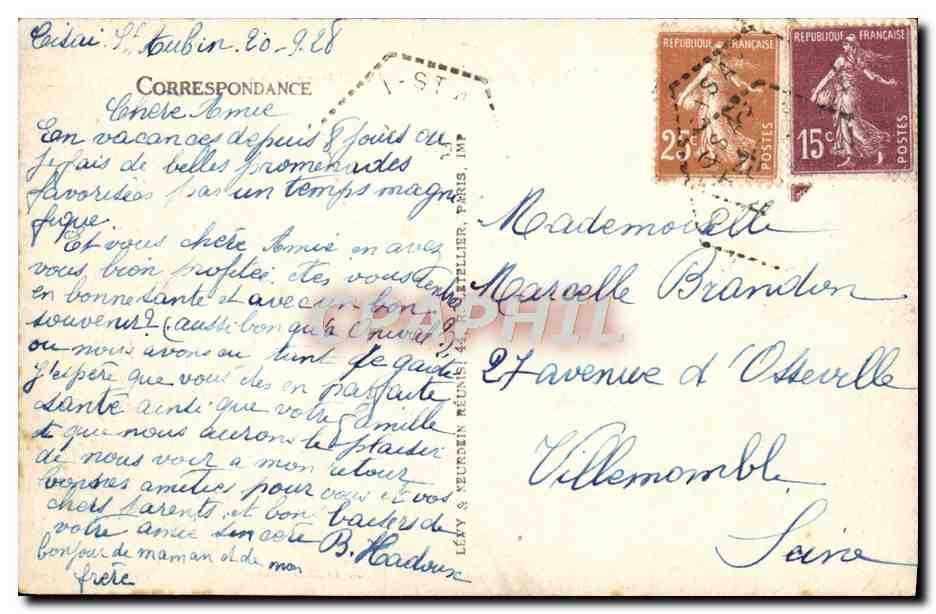 Cisai St Aubin 20-9-28
CORRESPONDANCE
Chère Amie
En vacances depuis 8 jours ou
je fais de belles promenades
favorisées par un temps magni
fique.
Et vous chère Amie en avez
vous bien profitée êtes vous
en bonne santé et avec un bon
souvenir? (aussi bon qu'a
ou nous avons eu tant de gaité
J'espère que vous êtes en parfaite
santé ainsi que votre famille
et que nous aurons le plaisir
de nous voir a mon retour
bonnes amitiés pour vous et vos
chers parents et bon baisers de
votre amie sincère B. Hadoux
bonjour de maman et de mon
frère
LÉVY & NEURDEIN RÉUNIS, 44, R. LETELLIER, PARIS, IMP
I-ST A
REPUBLIQUE FRANÇAISE
25c
POSTES
REPUBLIQUE FRANÇAISE
15c
POSTES
Mademoiselle
Marcelle Brandon
27 avenue d'Osseville
Villemomble
Seine
CPAPHIL